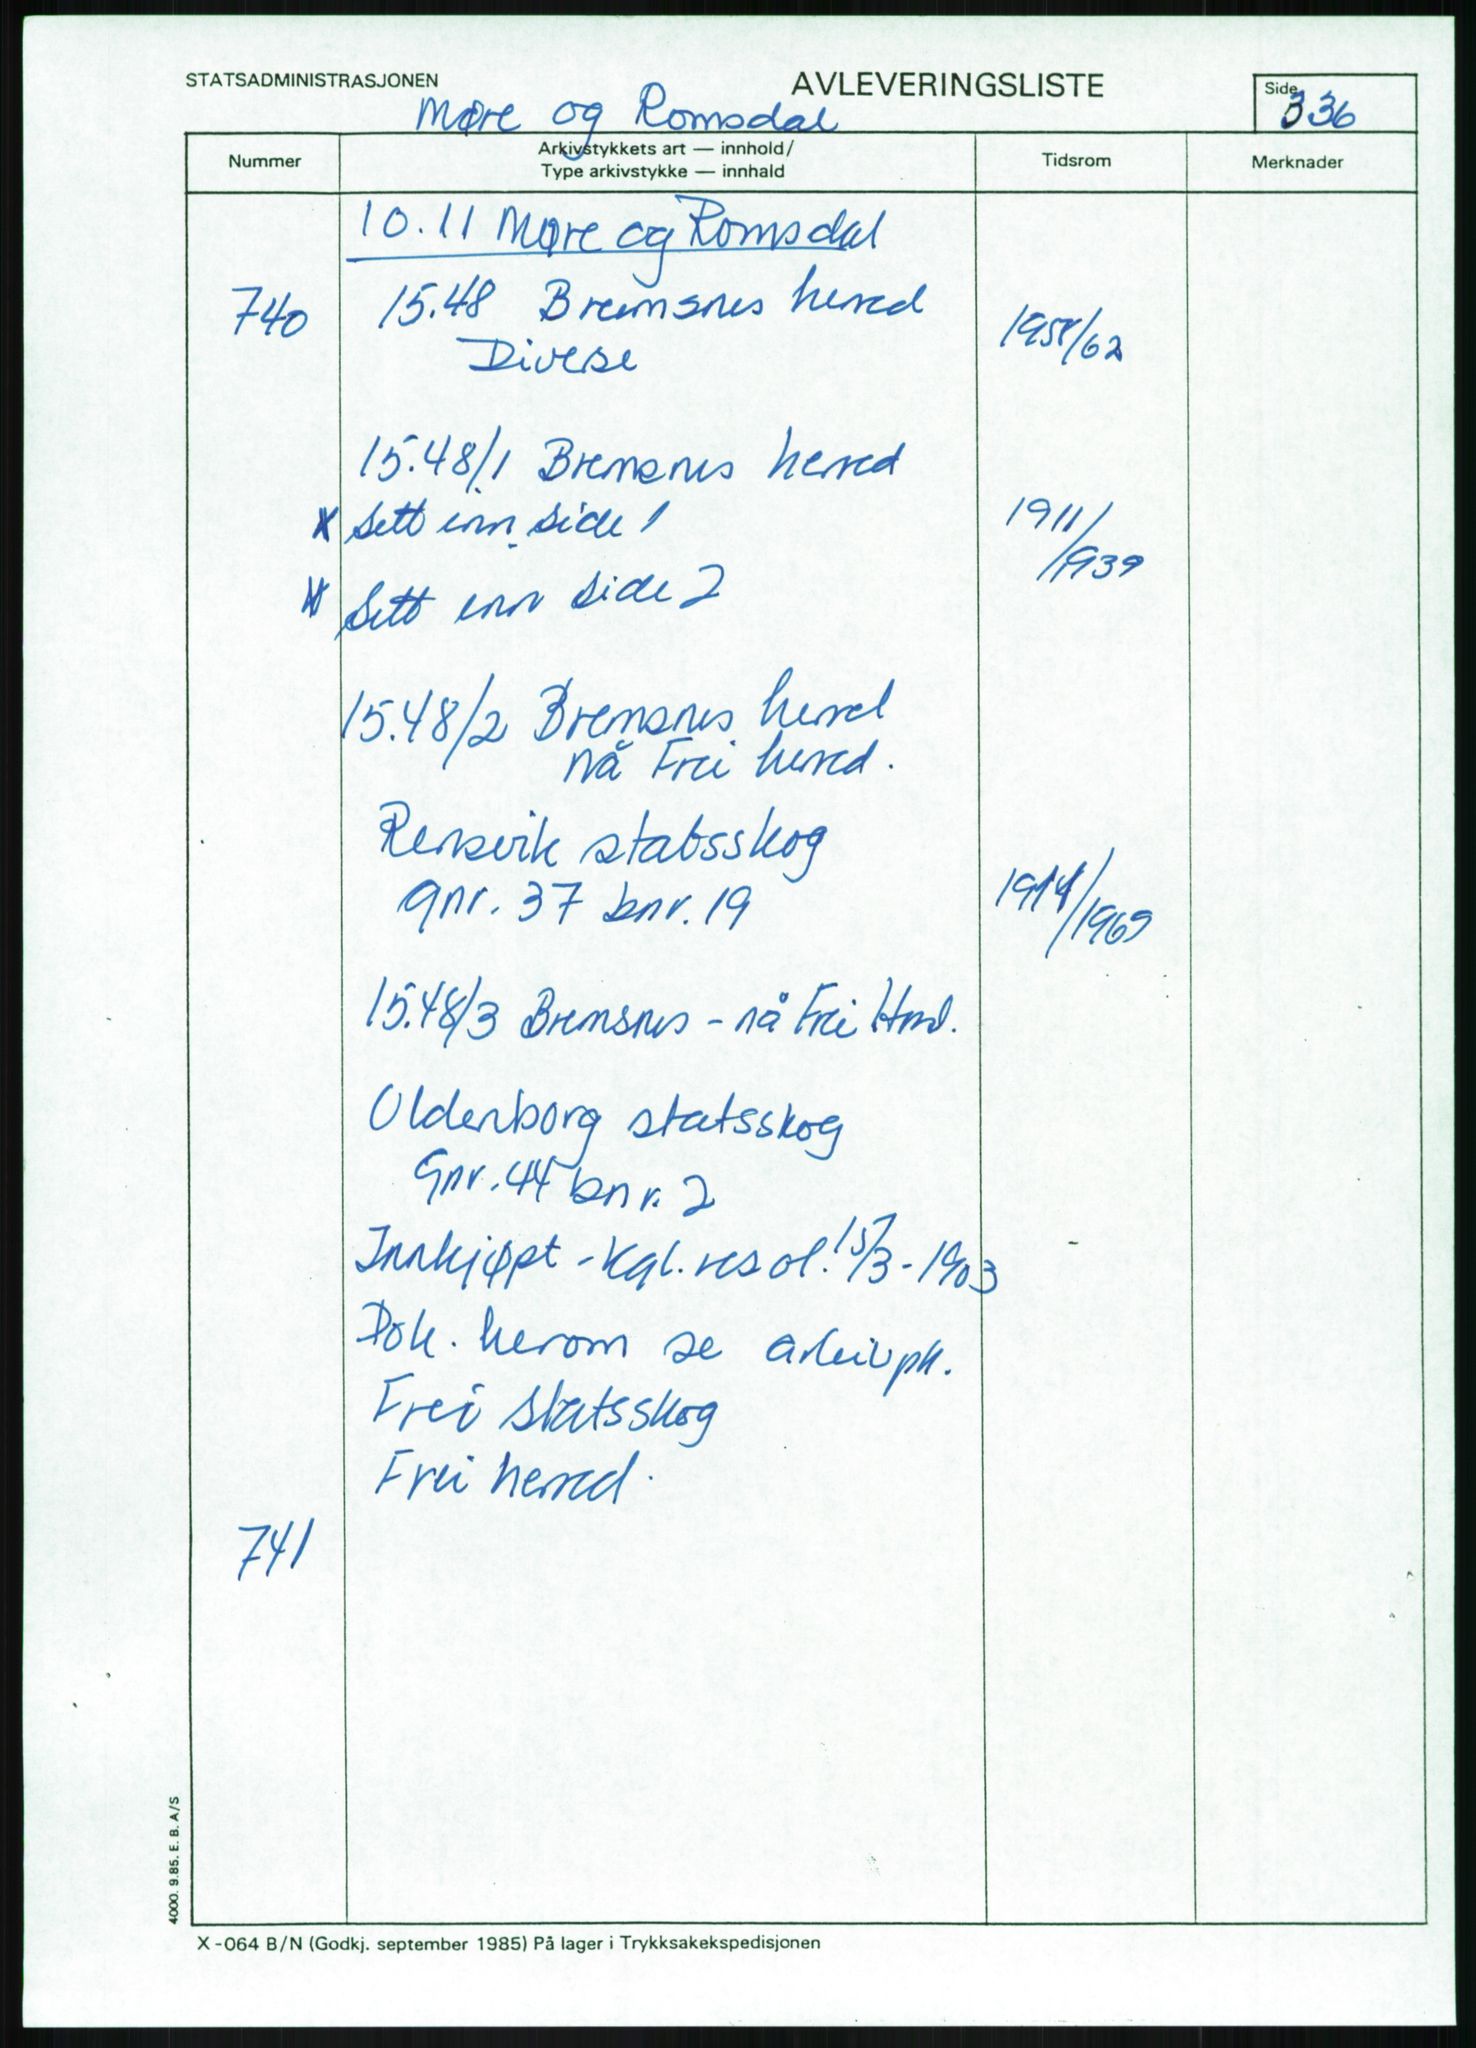 STATSADMINISTRASJONEN
AVLEVERINGSLISTE
Side
336
Møre og Romsdal
Nummer
Arkivstykkets art — innhold/
Type arkivstykke — innhald
Tidsrom
Merknader
10.11 Møre og Romsdal
740 15.48 Bremsnes herred
Diverse 1958/62
15.48/1 Bremsnes herred
* Sett inn side 1 1911/1939
* Sett inn side 2
15.48/2 Bremsnes herred
nå Frei herred.
Rensvik statsskog
gnr. 37 bnr. 19 1914/1969
15.48/3 Bremsnes - nå Frei Hrd.
Oldenborg statsskog
Gnr. 44 bnr. 2
Innkjøpt - Kgl. resol. 15/3 - 1903
Dok. herom se arkivpk.
Frei statsskog
Frei herred.
741
4000. 9.85. E. B. A/S
X-064 B/N (Godkj. september 1985) På lager i Trykksakekspedisjonen